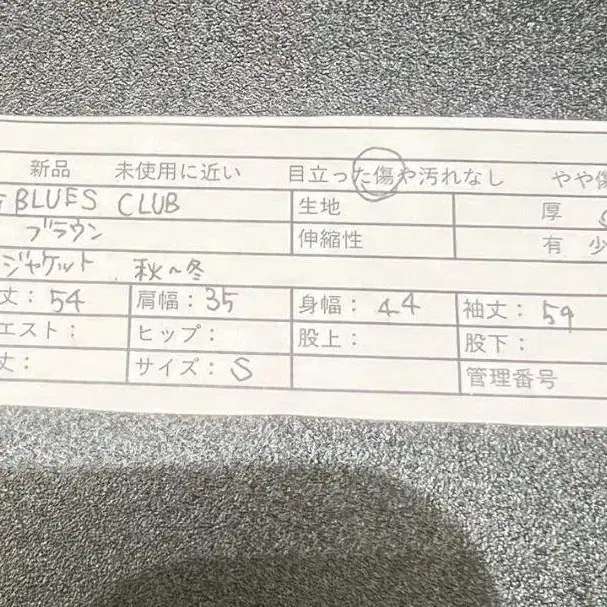 新品 未使用に近い 目立った傷や汚れなし やや傷
BLUES CLUB 生地 厚
ブラウン 伸縮性 有 少
ジャケット 秋~冬
丈: 54 肩幅: 35 身幅: 44 袖丈: 59
エスト: ヒップ: 股上: 股下:
丈: サイズ: S 管理番号